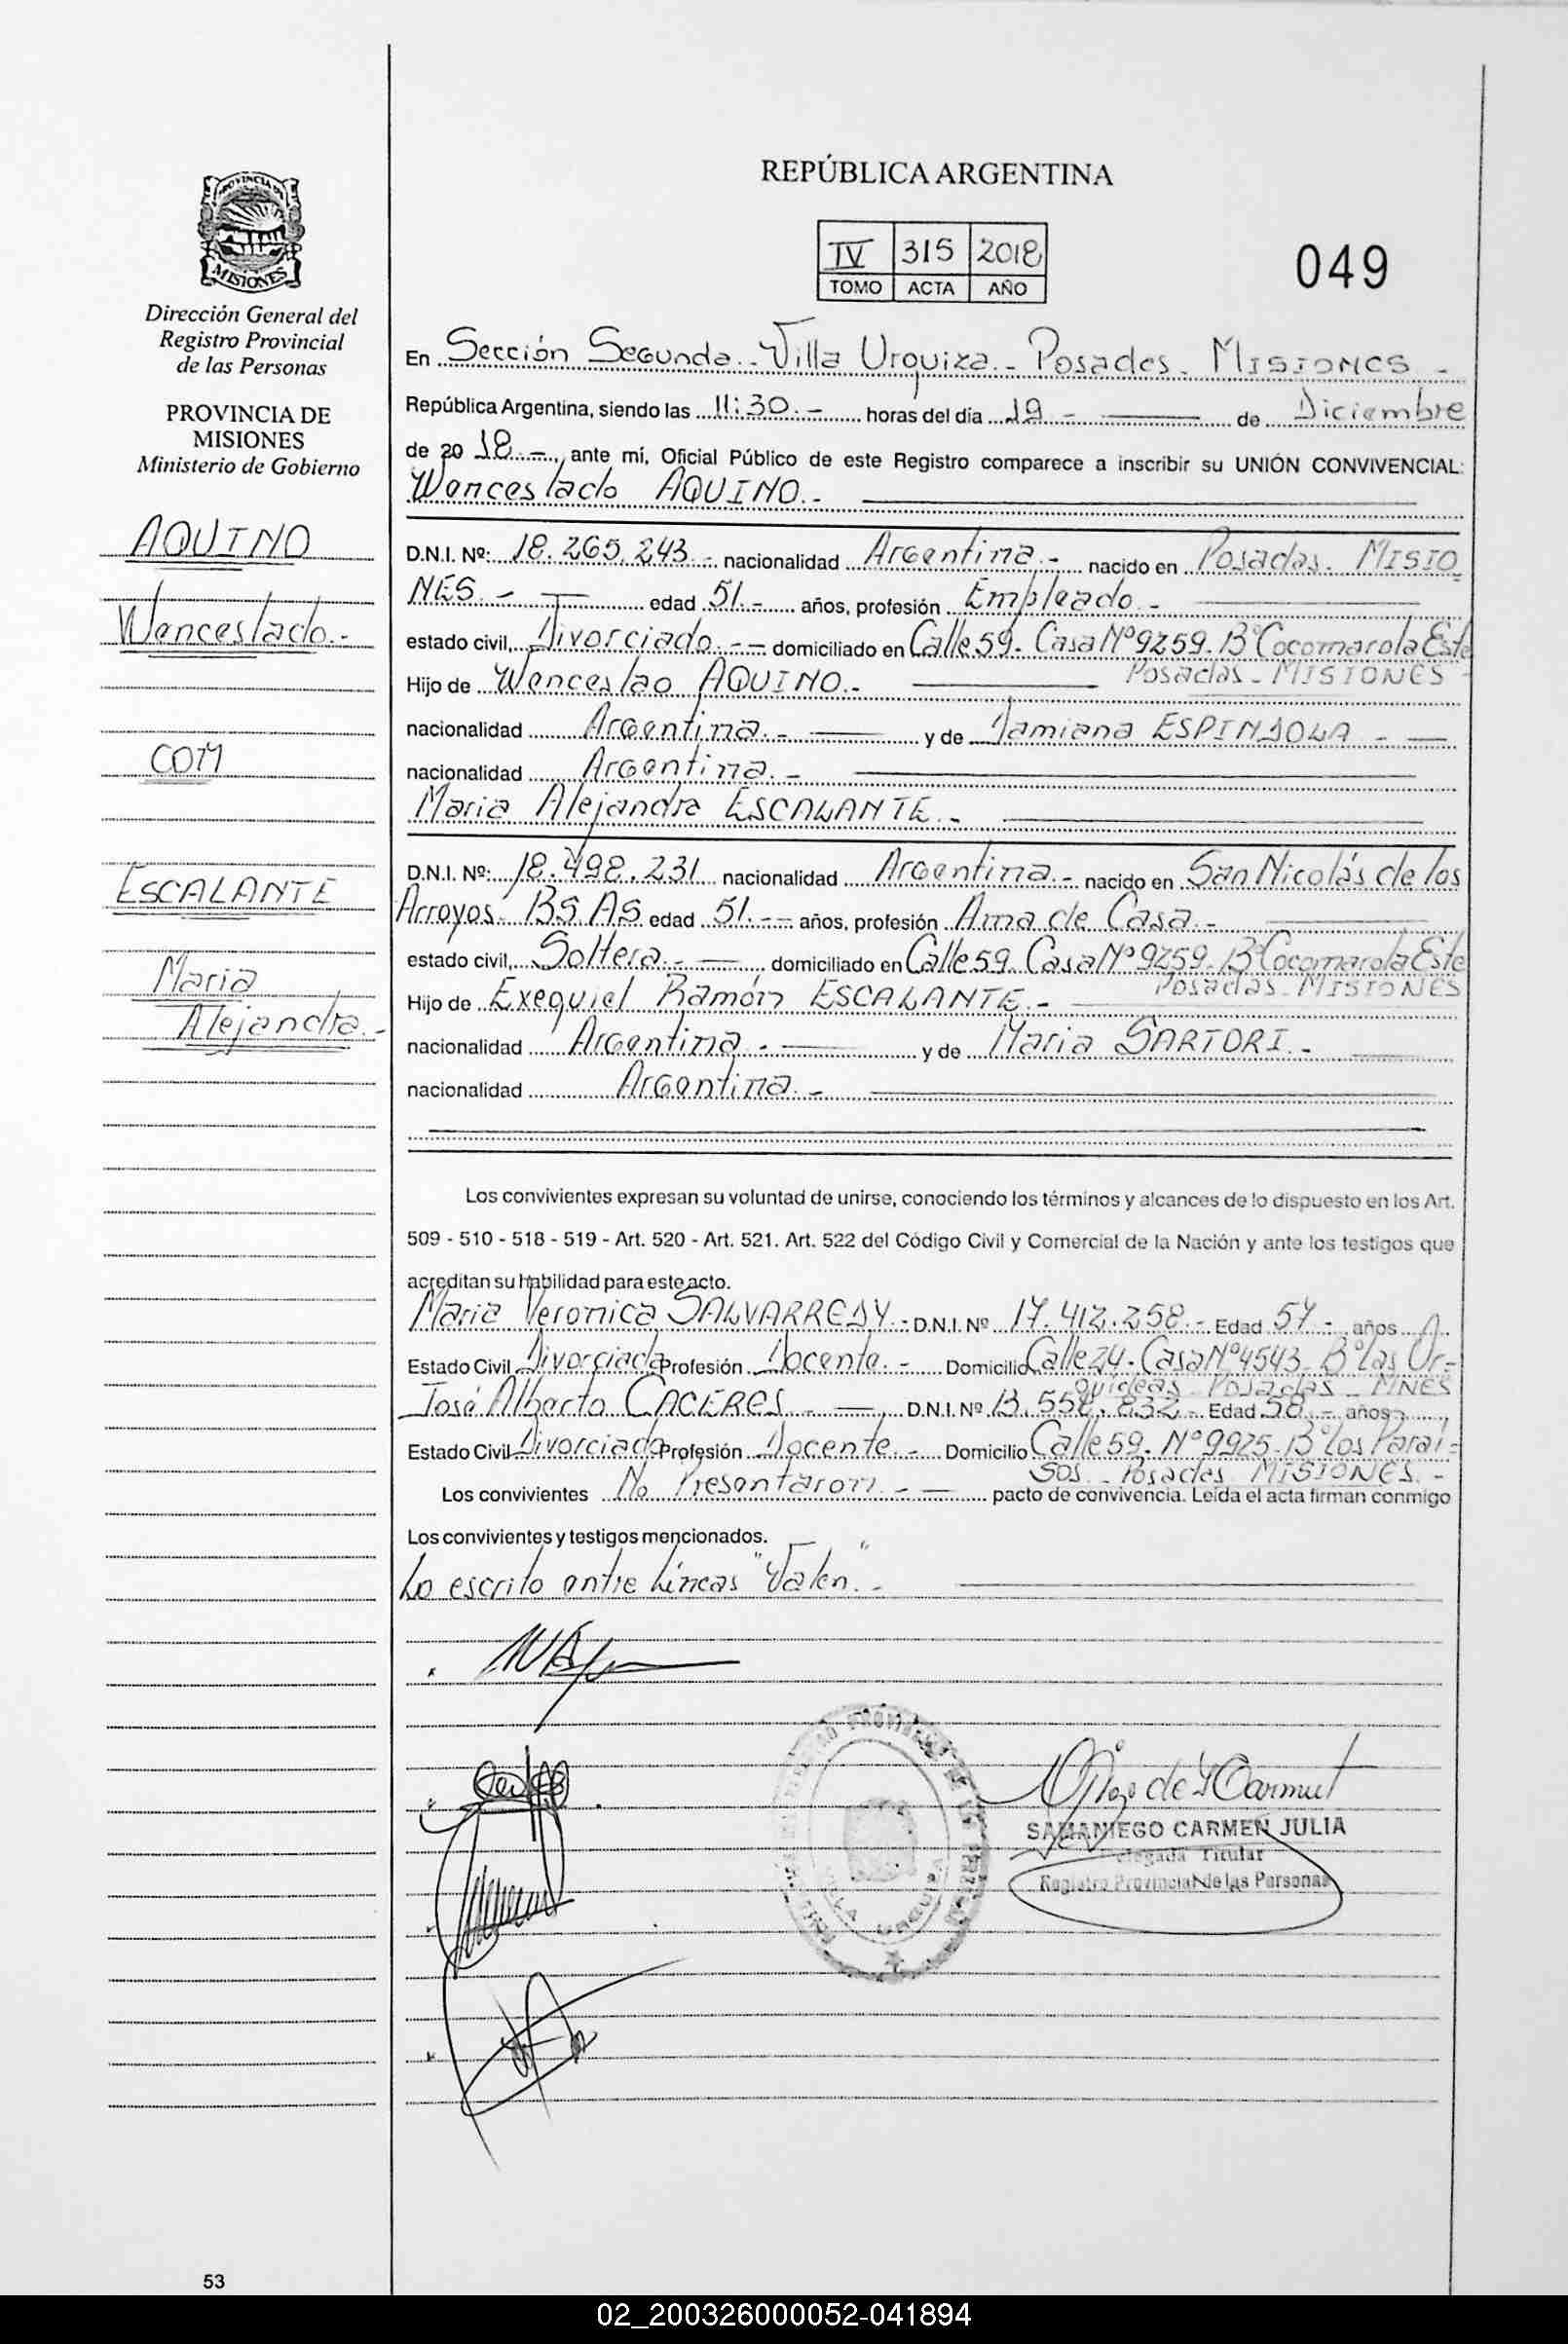 REPÚBLICA ARGENTINA
IV 315 2018
TOMO ACTA AÑO
049
PROVINCIA DE
MISIONES
Dirección General del
Registro Provincial
de las Personas
PROVINCIA DE
MISIONES
Ministerio de Gobierno
AQUINO
Wenceslado.-
CON
ESCALANTE
Maria
Alejandra.-
En Sección Segunda.- Villa Urquiza.- Posadas. MISIONES -
República Argentina, siendo las 11:30.- horas del día 19 - de Diciembre
de 20 18.-, ante mí, Oficial Público de este Registro comparece a inscribir su UNIÓN CONVIVENCIAL:
Wenceslado AQUINO.-
D.N.I. Nº: 18.265.243.- nacionalidad Argentina.- nacido en Posadas. MISIO
NES.- edad 51.- años, profesión Empleado.-
estado civil, Divorciado.-- domiciliado en Calle 59. Casa Nº 9259. Bº Cocomarola Este
Posadas - MISIONES -
Hijo de Wenceslao AQUINO.-
nacionalidad Argentina.- y de Damiana ESPINDOLA - -
nacionalidad Argentina.-
Maria Alejandra ESCALANTE.-
D.N.I. Nº: 18.498.231 nacionalidad Argentina.- nacido en San Nicolás de los
Arroyos. BS.AS. edad 51.-- años, profesión Ama de Casa.-
estado civil, Soltera.- domiciliado en Calle 59. Casa Nº 9259. Bº Cocomarola Este
Posadas - MISIONES
Hijo de Exequiel Ramón ESCALANTE.-
nacionalidad Argentina.- y de Maria SARTORI.-
nacionalidad Argentina.-
Los convivientes expresan su voluntad de unirse, conociendo los términos y alcances de lo dispuesto en los Art.
509 - 510 - 518 - 519 - Art. 520 - Art. 521. Art. 522 del Código Civil y Comercial de la Nación y ante los testigos que
acreditan su habilidad para este acto.
Maria Veronica SALVARREDY.- D.N.I. Nº 17.412.258.- Edad 57 - años
Estado Civil Divorciada Profesión Docente.- Domicilio Calle 24. Casa Nº 4543. Bº Las Or=
quideas Posadas - MNES
José Alberto CACERES.- D.N.I. Nº 13.558.832.- Edad 58.- años
Estado Civil Divorciado Profesión Docente.- Domicilio Calle 59. Nº 9925. Bº Los Parai=
sos - Posadas MISIONES.-
Los convivientes No Presentaron.- pacto de convivencia. Leída el acta firman conmigo
Los convivientes y testigos mencionados.
Lo escrito entre Líneas "Valen".-
SAMANIEGO CARMEN JULIA
Delegada Titular
Registro Provincial de las Personas
53
02_200326000052-041894